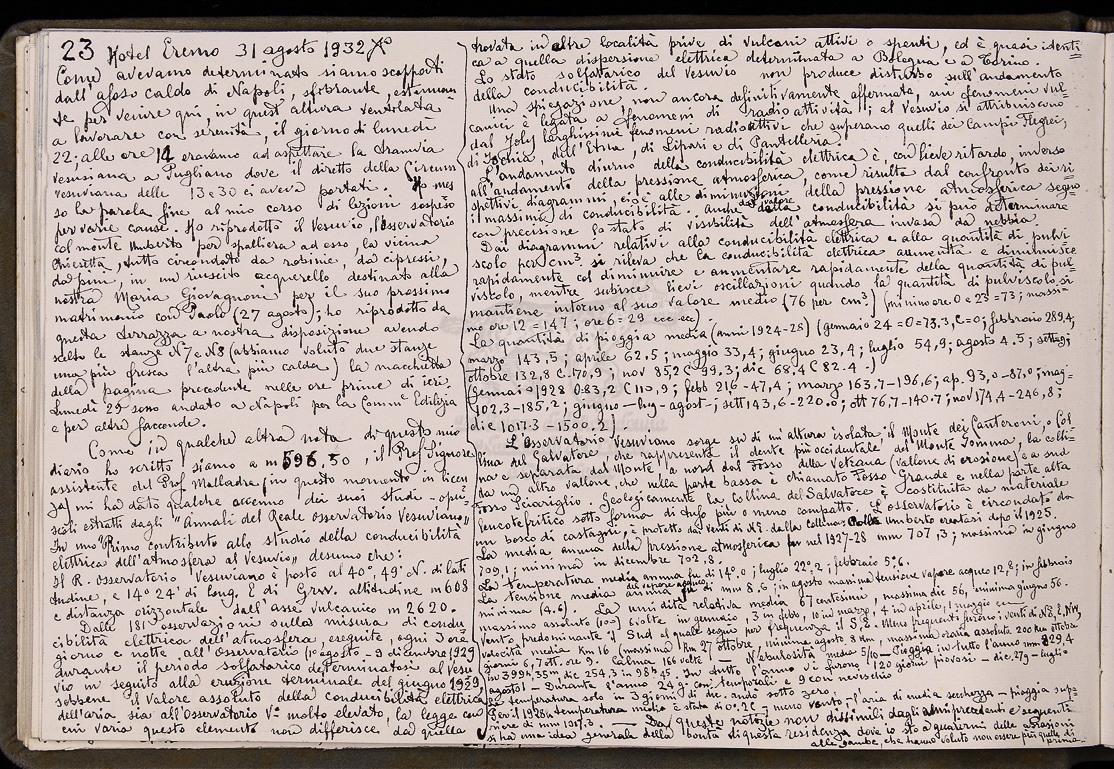 23 Hotel Eremo 31 agosto 1932 Xº
Come avevamo determinato siamo scappati
dall'afoso caldo di Napoli, sfibrante, estenuan=
te per venire qui, in quest'altura ventilata
a lavorare con serenità, il giorno di lunedì
22: alle ore 14 eravamo ad aspettare la tramvia
vesuviana a Pugliano dove il diretto della Circum
vesuviana delle 13 e 30 ci aveva portati. Ho mes
so la parola fine al mio corso di lezioni sospeso
per varie cause. Ho riprodotto il Vesuvio, l'osservatorio
col monte Umberto per spalliera ad esso, la vicina
Chiesetta, tutto circondato da robinie, da cipressi,
da pini, in un riuscito acquerello destinato alla
nostra Maria Giovagnoni per il suo prossimo
matrimonio con Paolo (27 agosto); ho riprodotto da
questa terrazza a nostra disposizione avendo
scelto le stanze N 7 e N 8 (abbiamo voluto due stanze
una più fresca l'altra più calda) la macchietta
della pagina precedente nelle ore prime di ieri.
Lunedì 29 sono andato a Napoli per la Comm.e Edilizia
e per altre faccende.
Come in qualche altra nota di questo mio
diario ho scritto, siamo a m 596,50, il Prof Signore
assistente del Prof Malladra (in questo momento in licen
za) mi ha dato qualche accenno dei suoi studi - opu=
scoli estratti dagli "Annali del Reale osservatorio Vesuviano"
In uno "Primo contributo allo studio della conducibilità
elettrica dell'atmosfera al Vesuvio" desumo che:
Il R. osservatorio Vesuviano è posto al 40º.49' N. di lati
tudine, e 14º 24' di long. E di Grw. altitudine m 608
e distanza orizzontale dall'asse vulcanico m 2620.
Dalle 1813 osservazioni sulla misura di condu
cibilità elettrica dell'atmosfera, eseguite, ogni 3 ore
giorno e notte all'Osservatorio (1º agosto - 9 dicembre 1929
durante il periodo solfatarico determinatosi al Vesu
vio in seguito alla eruzione terminale del giugno 1929
sebbene il valore assoluto della conducibilità elettrica
dell'aria sia all'Osservatorio Vº molto elevato, la legge con
cui varia questo elemento non differisce da quella
trovata in altre località prive di vulcani attivi o spenti, ed è quasi identi
ca a quella dispersione elettrica determinata a Bologna e a Torino.
Lo stato solfatarico del Vesuvio non produce disturbo sull'andamento
della conducibilità.
Una spiegazione, non ancora definitivamente affermata, sui fenomeni vul=
canici è legata a fenomeni di radioattività; al Vesuvio si attribuiscono
dal Joly larghissimi fenomeni radioattivi che superano quelli dei Campi Flegrei,
di Ischia, dell'Etna, di Lipari e di Pantelleria.
L'andamento diurno della conducibilità elettrica è, con lieve ritardo, inverso
all'andamento della pressione atmosferica, come risulta dal confronto dei ri
spettivi diagrammi, cioè alle diminuzioni della pressione atmosferica segno
i massimi di conducibilità. Anche dal valore della conducibilità si può determinare
con precisione lo stato di visibilità dell'atmosfera invasa da nebbia.
Dai diagrammi relativi alla conducibilità elettrica e alla quantità di pulvi
scolo per cm³. si rileva che la conducibilità elettrica aumenta e diminuisce
rapidamente col diminuire e aumentare rapidamente della quantità di pul=
viscolo, mentre subisce lievi oscillazioni quando la quantità di pulviscolo si
mantiene intorno al suo valore medio (76 per cm³) (minimo ore 0 e 23 = 73; massi=
mo ore 12 = 147; ore 6 - 29 ecc ecc)
La quantità di pioggia media (anni 1924-28) (gennaio 24 = 0 = 73.3, C = 0; febbraio 289.4;
marzo 143,5; aprile 62,5; maggio 33,4; giugno 23,4; luglio 54,9; agosto 4.5;
ottobre 132,8 C 70,9 nov 85,2 C 99,3; dic 68.4 C 82.4.)
Gennaio 1928 0.83,2 C 110,9; febb 216 - 47,4; marzo 163.7 - 196,6; ap. 93,0 - 87,0; mag=
102.3 - 185,2; giugno - lug - agost -; sett 143,6 - 220.0; ott 76.7 - 140.7; nov 174,4 - 246,8;
dic 1017.3 - 1500.2
L'Osservatorio Vesuviano sorge su di un'altura isolata, il Monte dei Canteroni, o Col
lina del Salvatore che rappresenta il dente più occidentale del Monte Somma, la colli=
na è separata dal Monte a nord dal Fosso della Vetrana (vallone di erosione) e a sud
da un altro vallone, che nella parte bassa è chiamato Fosso Grande e nella parte alta
Fosso Sciariglio. Geologicamente la collina del Salvatore è costituita da materiale
leucotefritico sotto forma di tufo più o meno compatto. L'osservatorio è circondato da
un bosco di castagni, è protetto dai venti di NE. dalla collina, Colle Umberto creatasi dopo il 1925.
La media annua della pressione atmosferica fu nel 1927-28 mm 707,3; massima in giugno
709,1; minima in dicembre 702,8.
La temperatura media annua fu di 14º.0; luglio 22º.2; febbraio 5º.6.
La tensione media del vapore acqueo annua fu di mm 8,6; in agosto massima tensione vapore acqueo 12,8; in febbraio
minima (4.6). La umidità relativa media 67 centesimi, massima dic 56, minima giugno 56.
massimo assoluto (100) 6 volte in gennaio, 3 in febb, 10 in marzo, 4 in aprile, 1 maggio
vento predominante il Sud al quale seguì per frequenza il S.E. Meno frequenti furono i venti di N.E. E, NW,
velocità media Km 16 (massima) Km 27 ottobre, minima agosto 8 km, massima oraria assoluta 200 km ottobre
giorni 6, 7 ott. ore 9. Calma 166 volte - Nebulosità media 5/10 - Pioggia in tutto l'anno mm 829,4
in 399 h, 35 m dic 254,3 in 98 h 45. In tutto l'anno vi furono 120 giorni piovosi - dic. 27 g - luglio
agosto 1 - Durante l'anno 24 g. con temporali e 9 con nevischio
La temperatura solo in 3 giorni di dic. andò sotto zero.
meno vento; l'aria di media secchezza - pioggia sup=
Da queste notizie non dissimili dagli anni precedenti e seguenti
si ha una idea generale della bontà di questa residenza dove io sto a quaderni delle
alle gambe, che hanno voluto non essere più quelle di
prima.